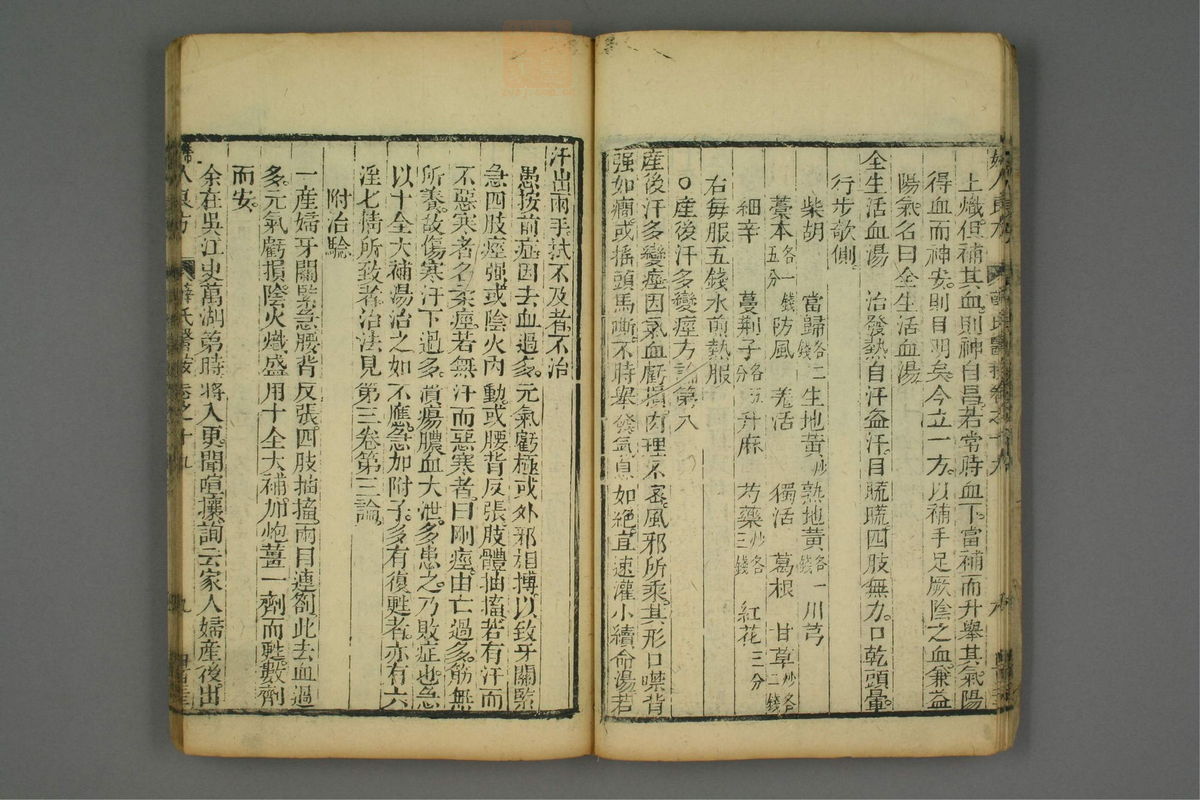 上熾但補其血則神自昌若常時血下當補而升舉其氣陽
得血而神安則目明矣今立一方以補手足厥陰之血兼益
陽氣名曰全生活血湯
全生活血湯 治發熱自汗盗汗目䀮䀮四肢無力口乾頭暈
行步欹側
柴胡 當歸各二錢 生地黃炒 熟地黃各一錢 川芎
藁本各一錢五分 防風 羌活 獨活 葛根 甘草炒各二錢
細辛 蔓荆子各五分 升麻 芍藥炒各三錢 紅花三分
右每服五錢水煎熱服
○産後汗多變痓方論第八
産後汗多變痓因氣血虧損肉理不密風邪所乘其形口噤背
强如癎或摇頭馬嘶不時舉發氣息如絶宜速灌小續命湯若
汗出兩手拭不及者不治
愚按前症因去血過多元氣虧極或外邪相搏以致牙關緊
急四肢痙强或陰火内動或腰背反張肢體抽搐若有汗而
不惡寒者名柔痓若無汗而惡寒者曰剛痓由亡過多筋無
所養故傷寒汗下過多潰瘍膿血大泄多患之乃敗症也急
以十全大補湯治之如不應急加附子多有復甦者亦有六
淫七情所致者治法見第三卷第三論
附治驗
一産婦牙關緊急腰背反張四肢抽搐兩目連劄此去血過
多元氣虧損陰火熾盛用十全大補加炮薑一劑而甦數劑
而安
余在吳江史萬湖第時將入更聞喧攘詢云家人婦産後出
婦人良方 薛氏醫按卷之十九 九